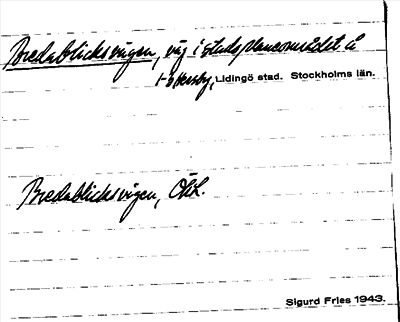 Bredablicksvägen, väg i stadsplaneområdet å
Hersby, Lidingö stad. Stockholms län.
Bredablicksvägen, ÖkL.
Sigurd Fries 1943.